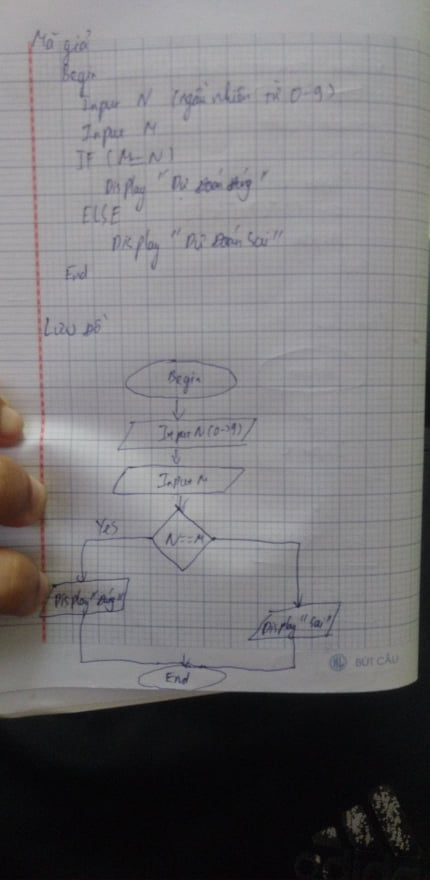 Mã giả
Begin
Input N (ngẫu nhiên từ 0-9)
Input M
IF (M=N)
Display "Dự đoán đúng"
ELSE
Display "Dự đoán Sai"
End
Lưu đồ
Begin
Input N (0->9)
Input M
Yes
N==M
Display "đúng"
Display "Sai"
BÚT CÂU
End